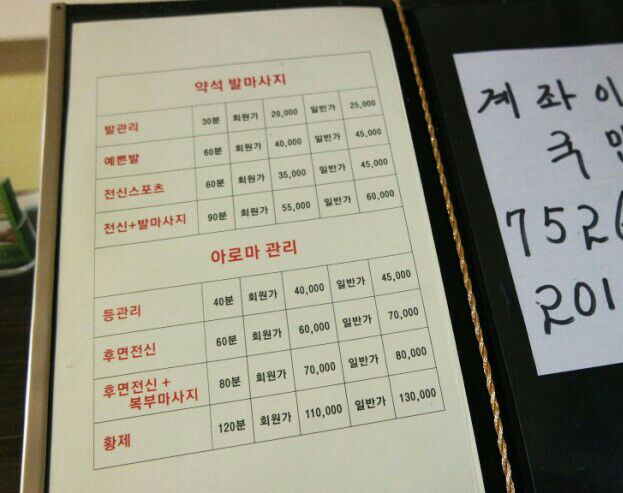 약석 발마사지
발관리 30분 회원가 20,000 일반가 25,000
예쁜발 60분 회원가 40,000 일반가 45,000
전신스포츠 60분 회원가 35,000 일반가 45,000
전신+발마사지 90분 회원가 55,000 일반가 60,000
아로마 관리
등관리 40분 회원가 40,000 일반가 45,000
후면전신 60분 회원가 60,000 일반가 70,000
후면전신 + 80분 회원가 70,000 일반가 80,000
복부마사지
황제 120분 회원가 110,000 일반가 130,000
계좌이
국민
752
201